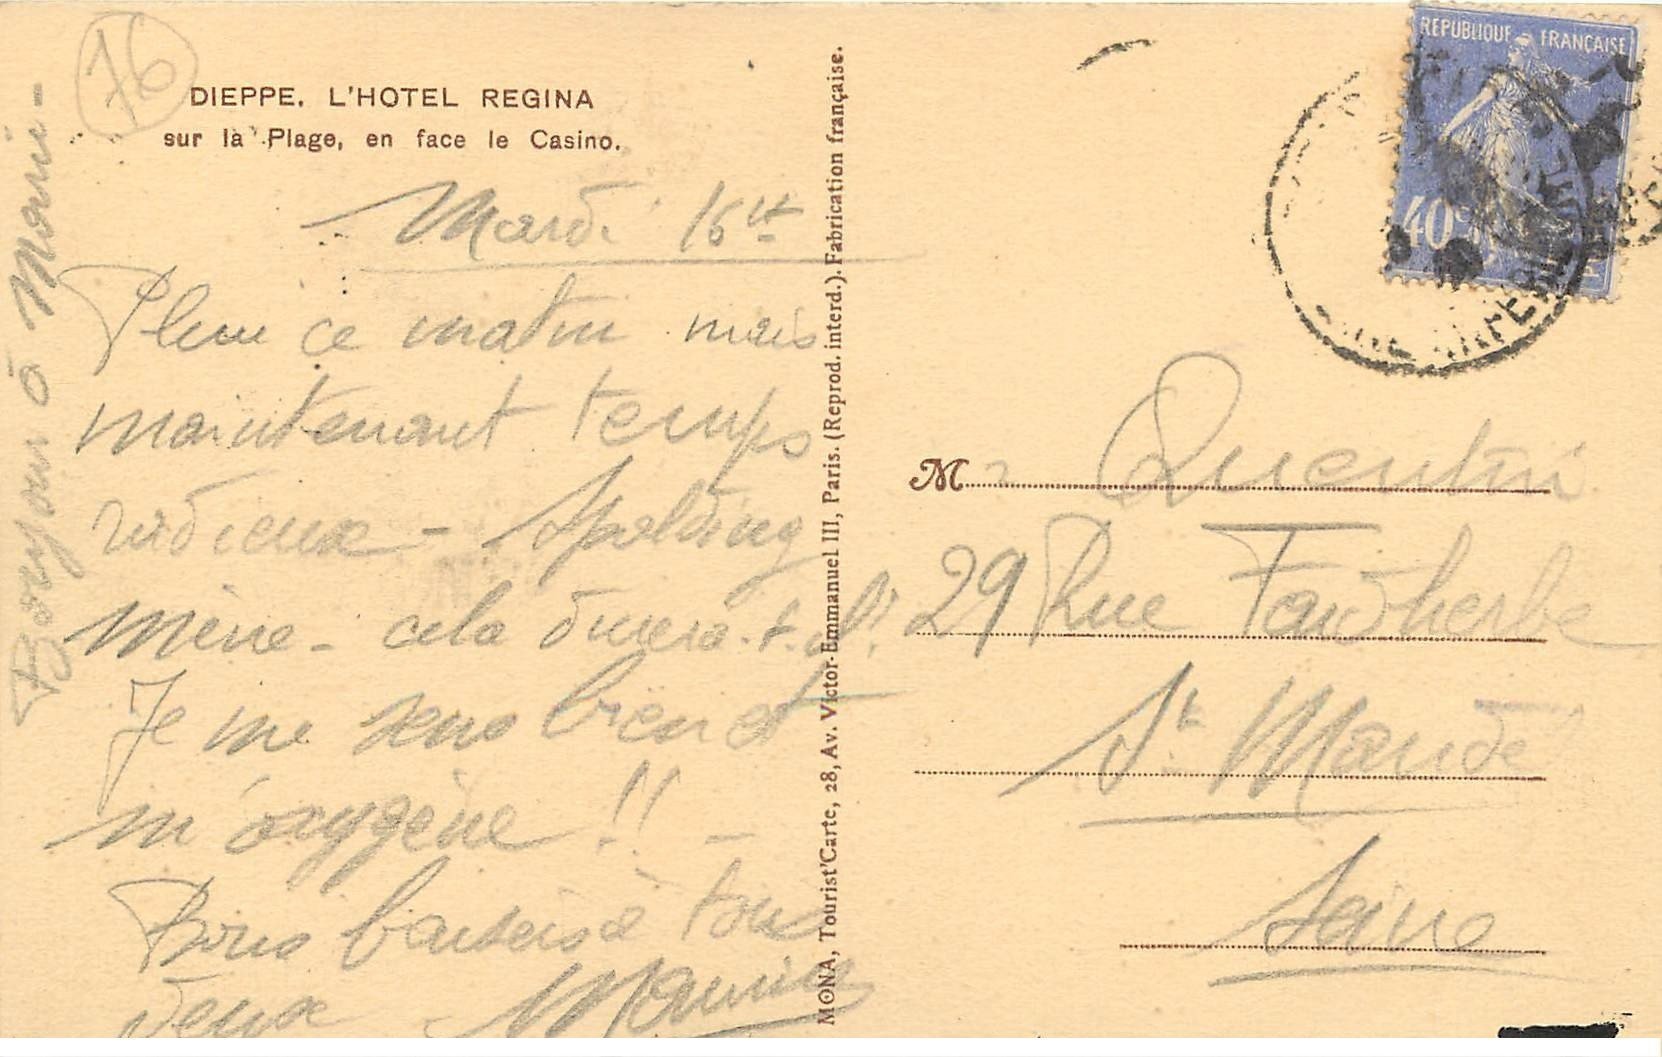 76
DIEPPE. L'HOTEL REGINA
sur la Plage, en face le Casino.
Mardi 16 ct
Pluie ce matin mais
maintenant temps
radieux - Spolding
mène - cela durera-t-il?
Je me sens bien et
m'oxygène !! -
Bons baisers à tous
deux Maurice
Bonjour à Marie -
MONA, Tourist'Carte, 28, Av. Victor-Emmanuel III, Paris. (Reprod. interd.). Fabrication française.
REPUBLIQUE FRANÇAISE
40c
Mr Quentin
29 Rue Faidherbe
St Mandé
Seine